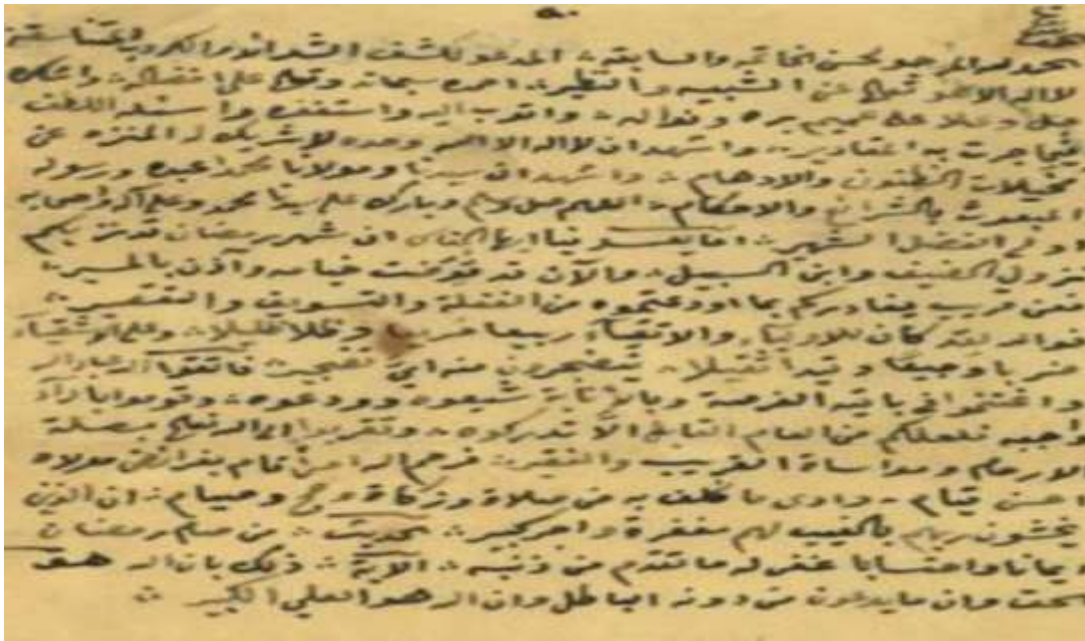 ٥٠
الحمد لله المرجو لحسن الخاتمة والسابقة المدعو لكشف الشدائد والكروب
لا اله الا هو تعالى عن الشبيه والنظير احمده سبحانه وتعالى على افضاله واشكره
جل وعلا على عميم بره ونواله واتوب اليه واستغفره واسئله اللطف
فيما جرت به المقادير واشهد ان لا اله الا الله وحده لا شريك له المنزه عن
تخيلات الظنون والاوهام واشهد ان سيدنا ومولانا محمدا عبده ورسوله
المبعوث بالشرائع والاحكام اللهم صل وسلم وبارك على سيدنا محمد وعلى آله وصحبه
اولى الفضل الشهير اما بعد فيا ايها الناس ان شهر رمضان قد نزل بكم
نزول الضيف وابن السبيل والآن قد قوضت خيامه وآذن بالمسير
فعن قريب يغادركم بما اودعتموه من الغفلة والتسويف والتقصير
فوالله لقد كان للاولياء والاتقياء ربيعا مريعا وظلا ظليلا وعلى الاشقياء
ضربا وجيعا وقيدا ثقيلا يتضجرون منه اي تضجير فاتقوا الله عباد الله
واغتنموا في باقيه الفرصة وبالانابة شيعوه وودعوه وقوموا باداء
واجبه فلعلكم من العام القابل لا تدركوه وتقربوا الى الله تعالى بصلة
الارحام ومواساة الغريب والفقير فرحم الله امرأ قام بفرائض مولاه
احسن قيام وادى ما كلف به من صلاة وزكاة وحج وصيام ان الذين
يخشون ربهم بالغيب لهم مغفرة واجر كبير حديث من صام رمضان
ايمانا واحتسابا غفر له ما تقدم من ذنبه الآية ذلك بان الله هو
الحق وان ما يدعون من دونه الباطل وان الله هو العلي الكبير